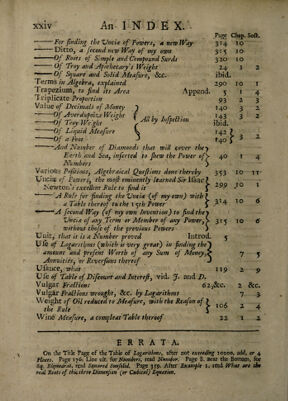 xxiv An INDEX.
Page Chap. Sect.
— For finding the Unciæ of Powers, a new Way 314 10
— Ditto, a second new Way of my own 315 10
— Of Roots of Simple and Compound Surds 320 10
— Of Troy and Apothecary's Weight 24 3 2
— Of Square and Solid Measure, &c. ibid.
Terms in Algebra, explained 290 10 1
Trapezium, to find its Area Append. 5 1 4
Triplicate Proportion 93 2 3
Value of Decimals of Money 140 3 2
— Of Averdupoize Weight 143 3 2
— Of Troy Weight All by Inspection ibid.
— Of Liquid Measure 142
— Of a Foot 140 3 2
— And Number of Diamonds that will cover the
Earth and Sea, inserted to shew the Power of 40 1 4
Numbers
Various Positions, Algebraical Questions done thereby 353 10 11
Unciæ of Powers, the most eminently learned Sir Isaac
Newton's excellent Rule to find it 299 10 1
— A Rule for finding the Unciæ (of my own) with
a Table thereof to the 15th Power 314 10 6
— A second Way (of my own Invention) to find the
Uncia of any Term or Member of any Power, 315 10 6
without those of the previous Powers
Unit, that it is a Number proved Introd. 5
Use of Logarithms (which is very great) in finding the
amount and present Worth of any Sum of Money, 7 5
Annuities, or Reversions thereof
Usance, what 119 2 9
Use of Table of Discount and Interest, vid. J. and D.
Vulgar Fractions 62,&c. 2 &c.
Vulgar Fractions wrought, &c. by Logarithms 7 3
Weight of Oil reduced to Measure, with the Reason of
the Rule 106 2 4
Wine Measure, a compleat Table thereof 22 1 2
ERRATA.
On the Title Page of the Table of Logarithms, after not exceeding 10000, add, or 4
Places. Page 176. Line ult. for Numbers, read Number. Page 8. near the Bottom, for
Sq. Biquadrat, read Squared Surfolid. Page 359. After Example 1. read What are the
real Roots of this three Dimension (or Cubical) Equation.